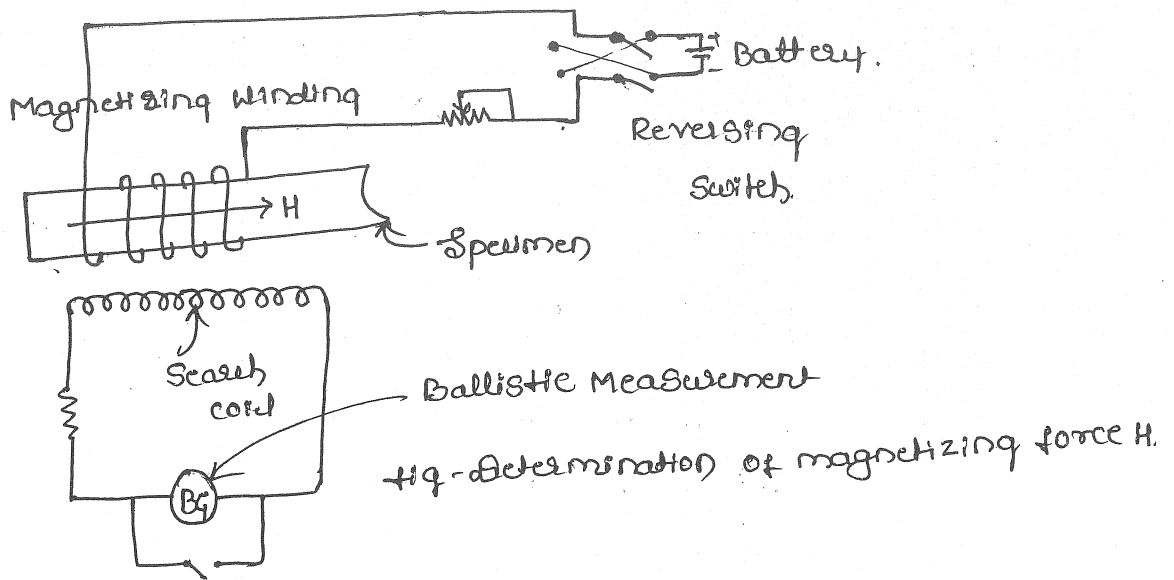 +
Battery.
-
Magnetizing winding
Reversing
Switch.
H
Specimen
Search
coil
Ballistic Measurement
fig-Determination of magnetizing force H.
BG